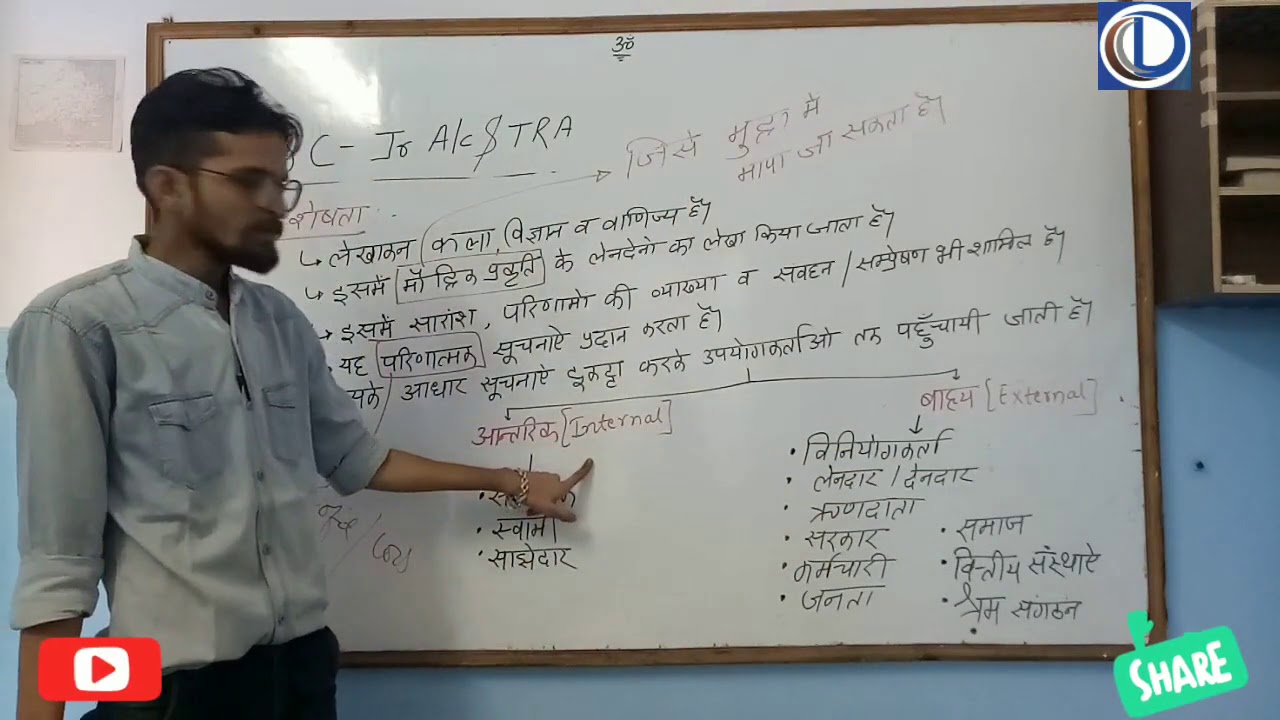 ॐ
C - Jr A/c $ TRA
जिसे मुद्रा में
मापा जा सकता है।
शेषता
↳ लेखांकन कला, विज्ञान व वाणिज्य है।
↳ इसमें मौद्रिक प्रकृति के लेनदेनो का लेखा किया जाता है।
↳ इसमें सारांश, परिणामो की व्याख्या व सवहन / सम्प्रेषण भी शामिल है।
यह परिणात्मक सूचनाऐ प्रदान करता है।
आधार सूचनाऐ इकट्ठा करके उपयोगकर्ताओ तक पहुँचायी जाती है।
आन्तरिक [Internal]
• स्वामी
• साझेदार
बाह्य [External]
• विनियोगकर्ता
• लेनदार / देनदार
• ऋणदाता
• सरकार
• कर्मचारी
• जनता
• समाज
• वित्तीय संस्थाऐ
• श्रम संगठन
SHARE